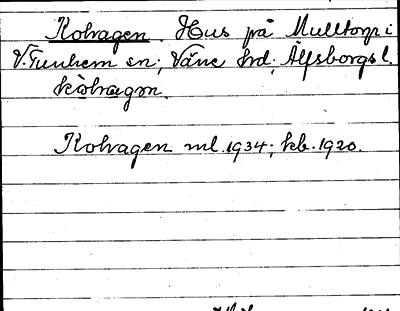 Kolvagen. Hus på Mulltorp i
V. Tunhem sn; Väne hd; Älfsborgs l.
Kolvagen ml. 1934; kb. 1920.